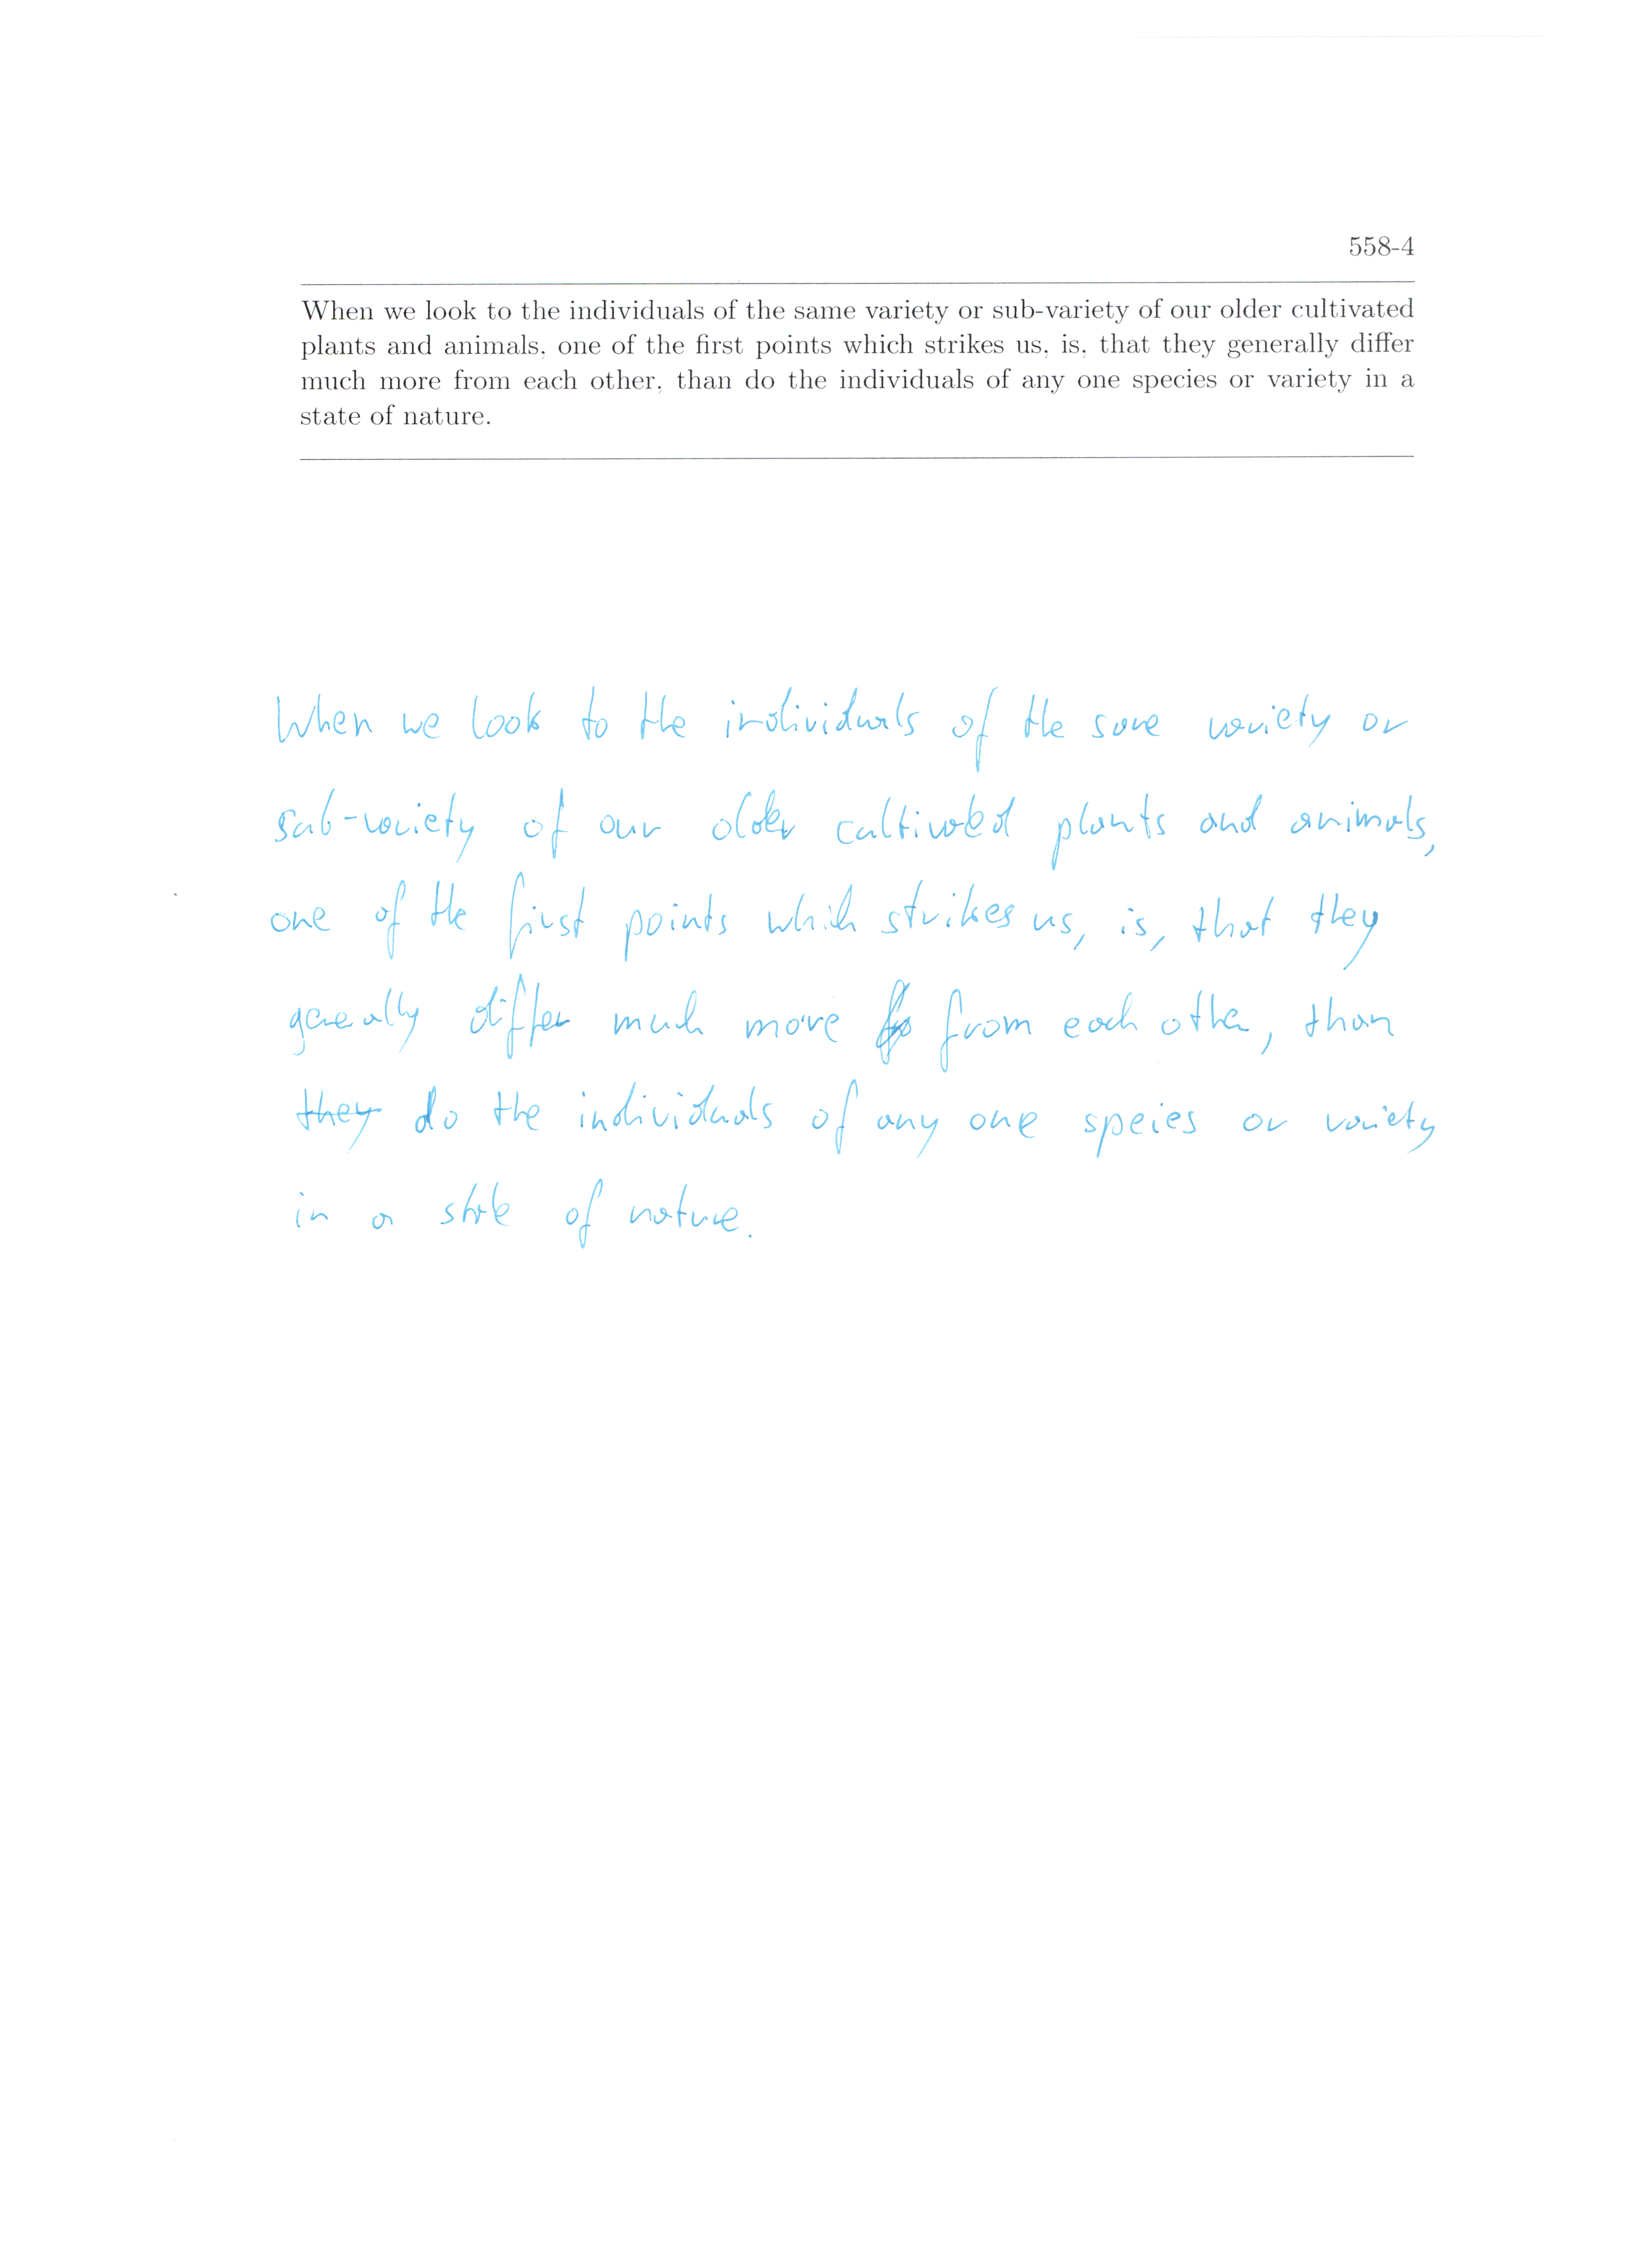 558-4
When we look to the individuals of the same variety or sub-variety of our older cultivated
plants and animals, one of the first points which strikes us, is, that they generally differ
much more from each other, than do the individuals of any one species or variety in a
state of nature.
When we look to the individuals of the same variety or
sub-variety of our older cultivated plants and animals,
one of the first points which strikes us, is, that they
generally differ much more from each other, than
they do the individuals of any one speies or variety
in a state of nature.